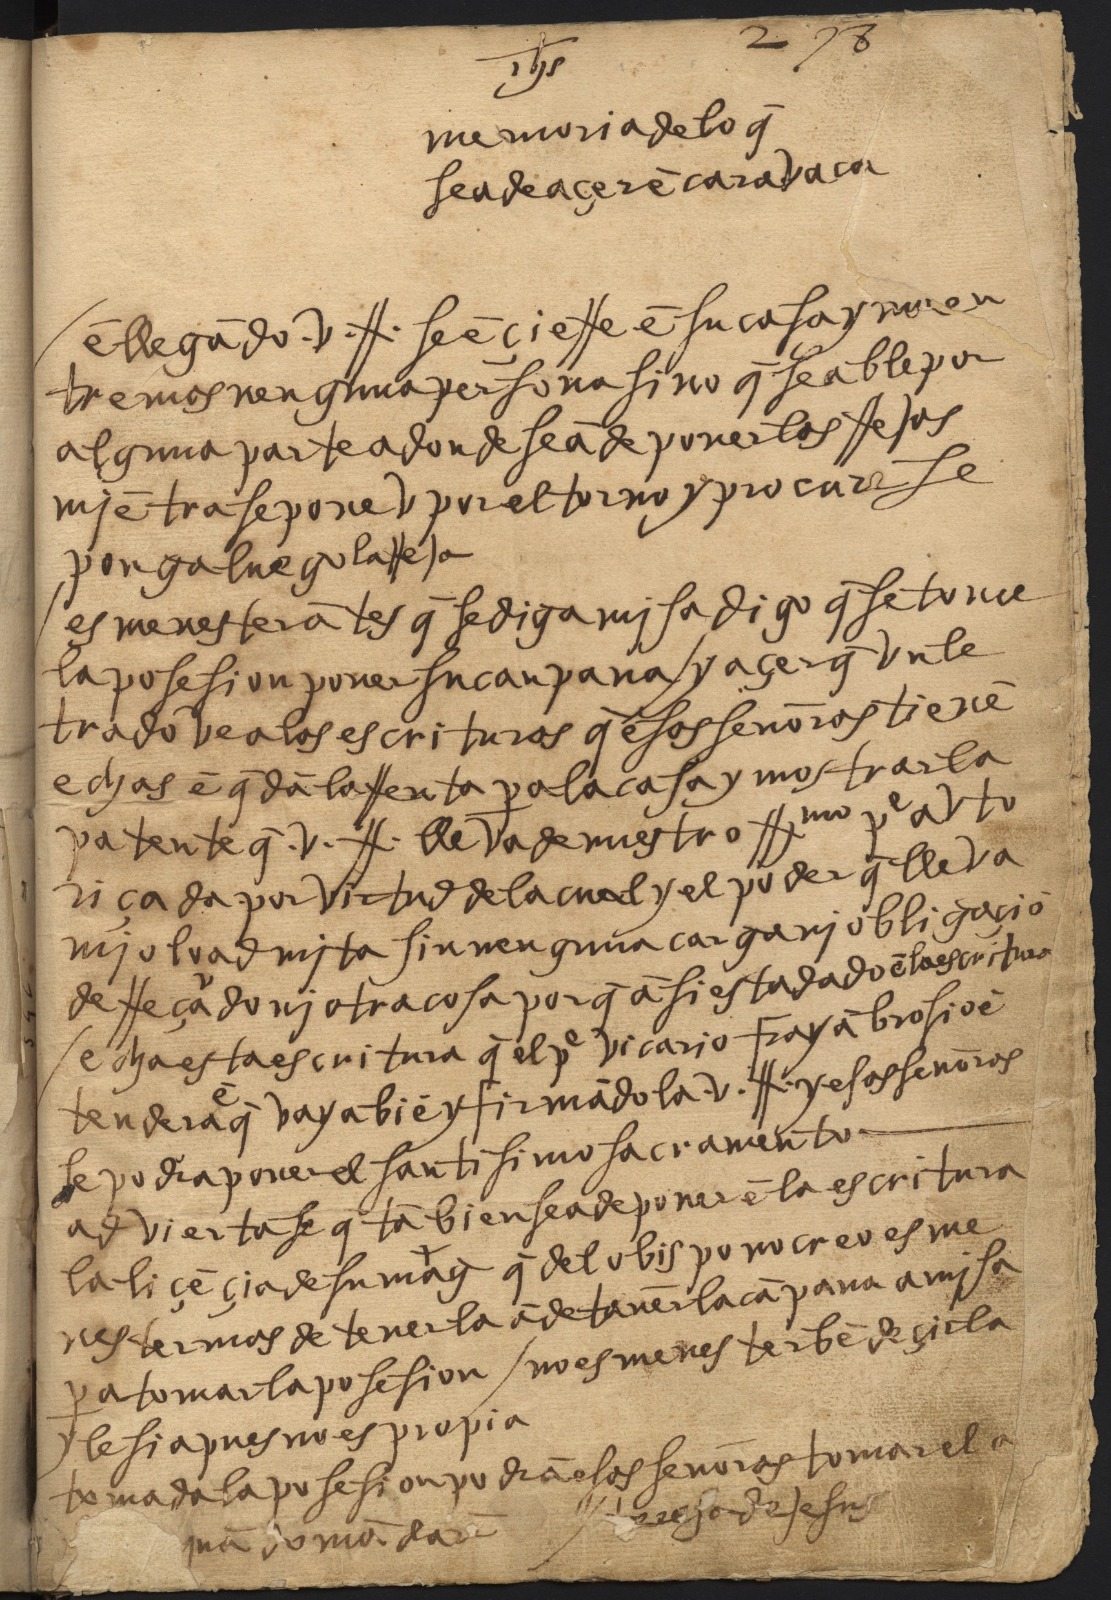 278
ihs
memoria de lo q̄
se a de açer ē caravaca
/ ē llegādo .v. R. se ē çierre ē su casa y no en
tre mas nenguna persona sino q̄ se able por
alguna parte adonde se ā de poner las rejas
mjētra se pone v por el torno y procure se
ponga luego la reja
/ es menester ātes q̄ se diga mjsa digo q̄ se tome
la posesion poner su canpana / y açer q̄ vn le
trado vea las escrituras q̄ esas señoras tienē
echas ē q̄ dā la renta pa la casa y mostrar la
patente q̄ .v. R. lleva de nuestro Rmo pe avto
riçada por virtud de la cual y el poder q̄ lleva
mjo lo admjta sin nenguna carga nj obligaçiō
de reçādo nj otra cosa porq̄ āsi esta dado ē la escritura
/ echa esta escritura q̄ el pe vicario fray ābrosio ē
tendera ē q̄ vaya biē y firmādola .v. R. y esas señoras
se podra poner el santisimo sacramento
adviertase q̄ tābien se a de poner ē la escritura
la liçēçia de su mag q̄ del obispo no creo es me
nester mas de tenerla ā de tañer la cāpana a mjsa
pa tomar la posesion / no es menester bēdeçir la
yglesia pues no es propia
tomada la posesion podrā esas señoras tomar el a
/ teresa de jesus